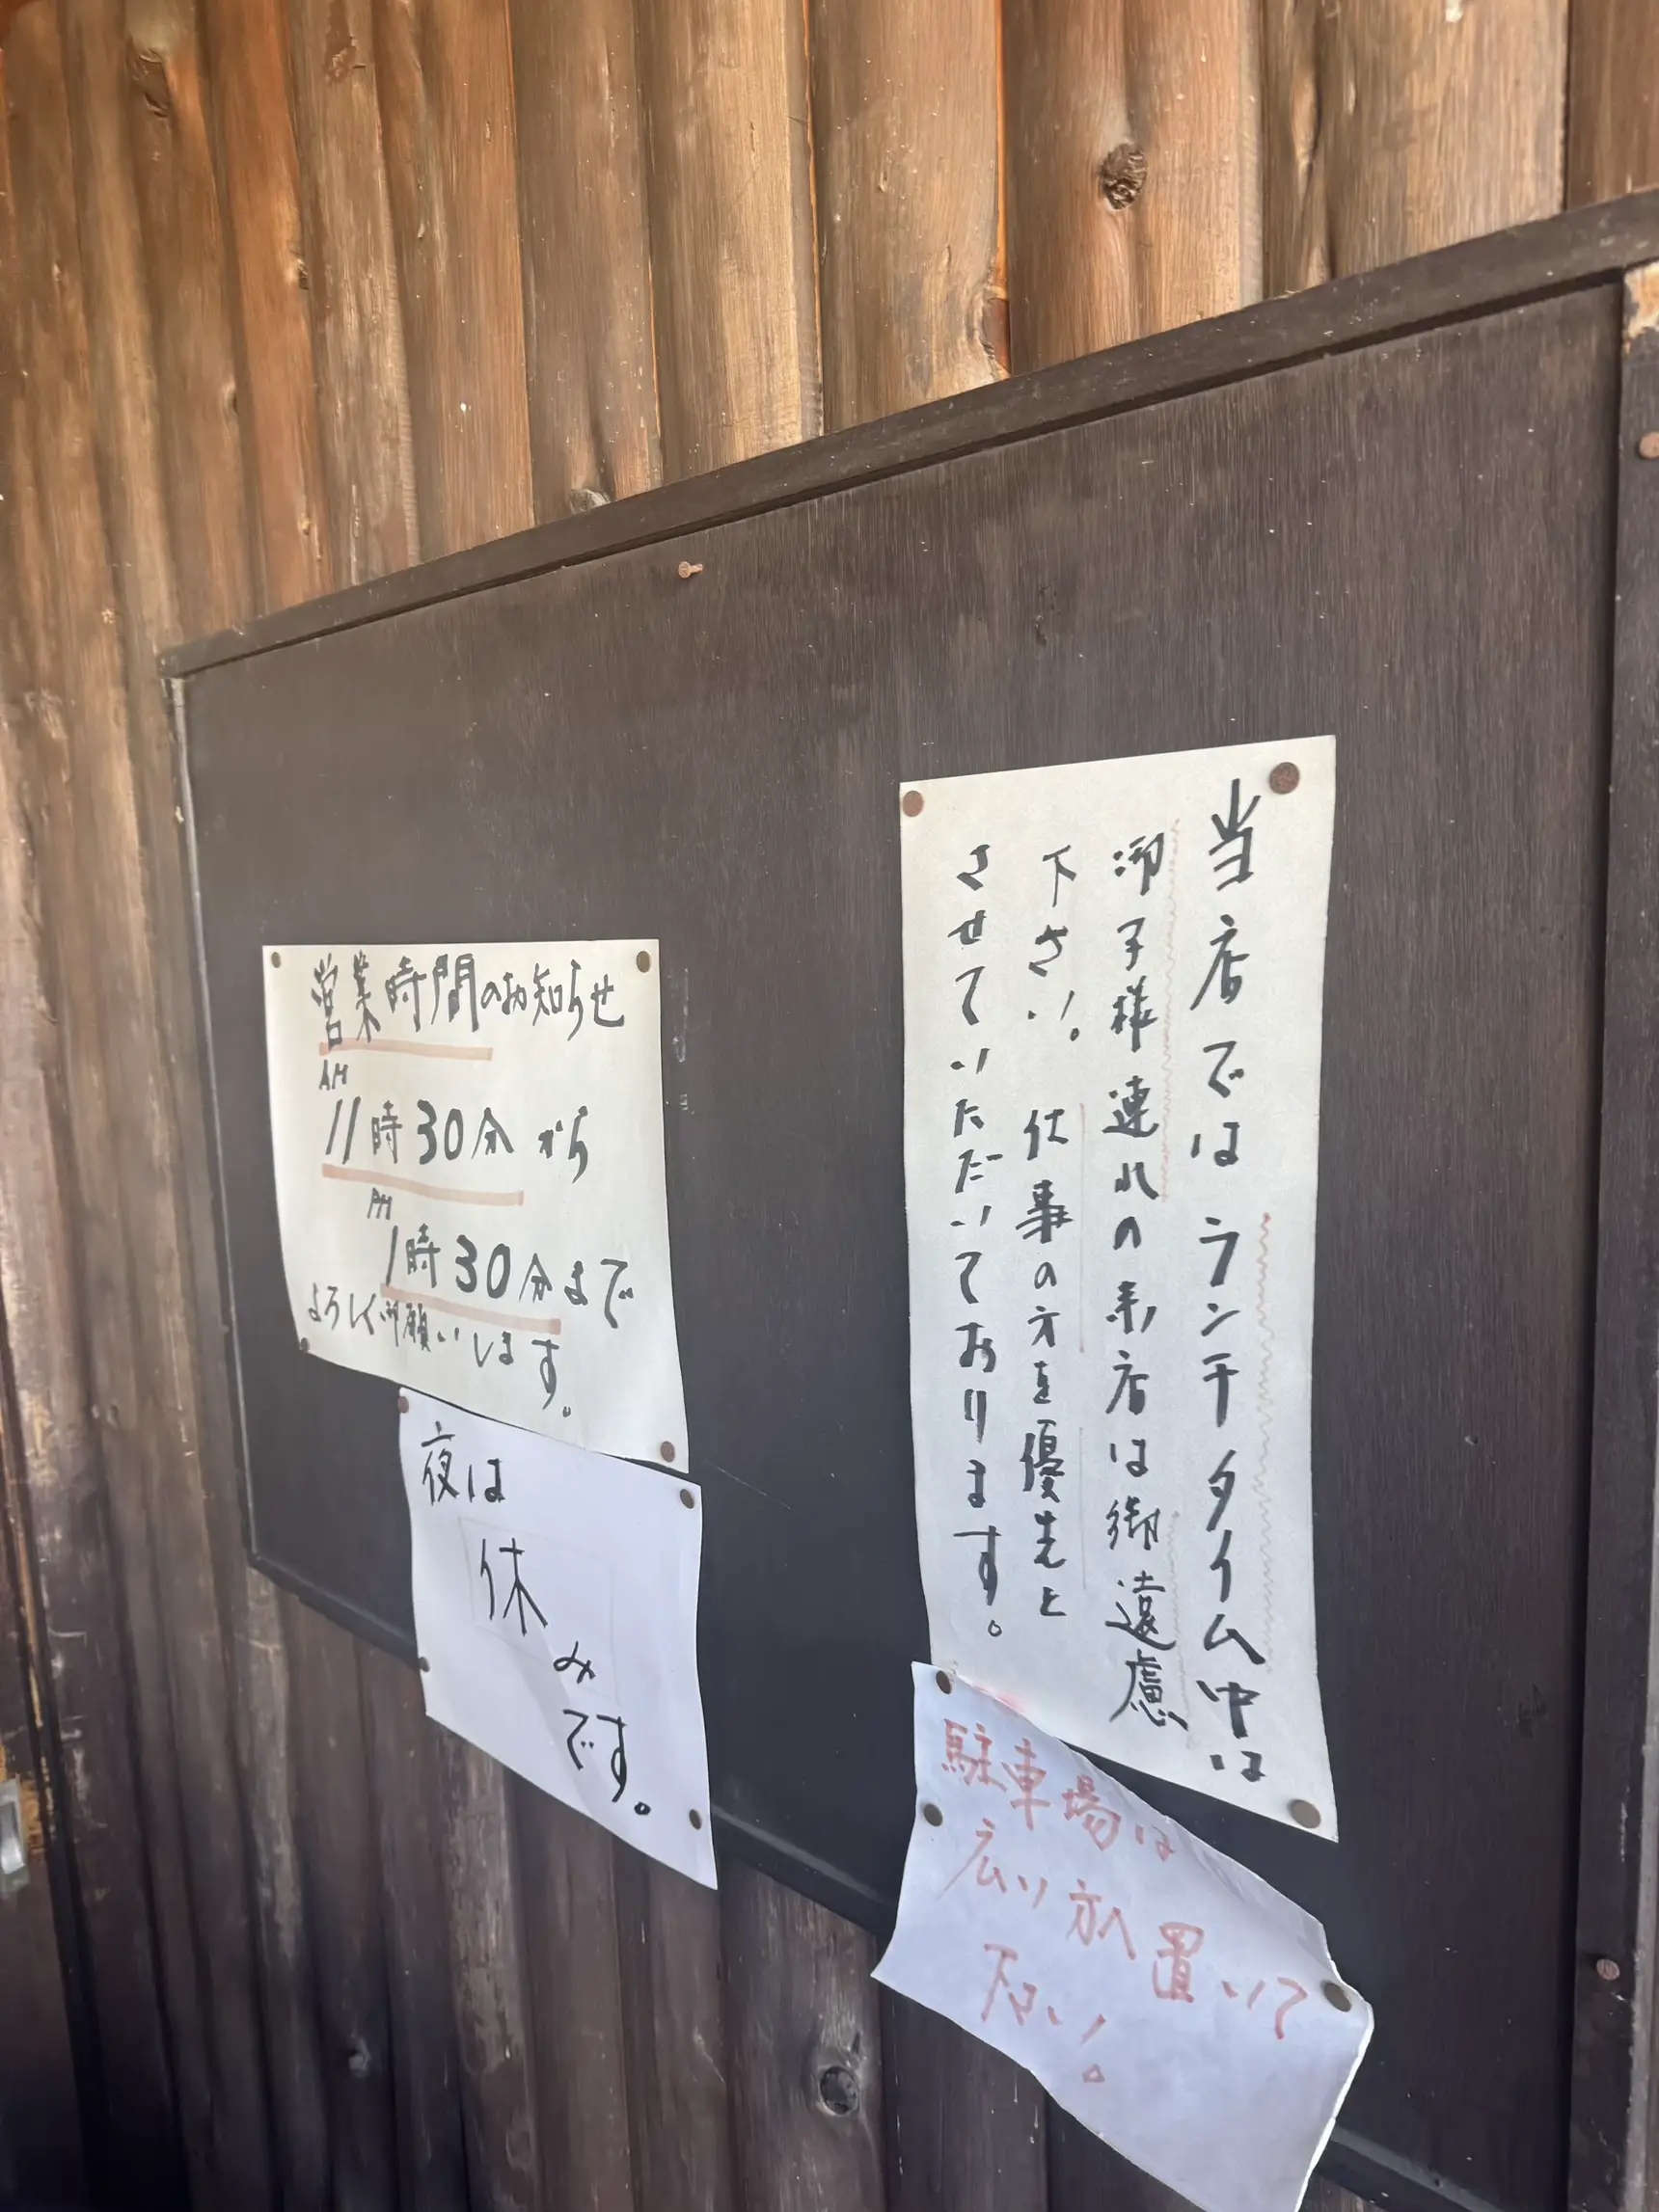 営業時間のお知らせ
AM
11時30分から
PM
1時30分まで
よろしく御願いします。
夜は
休み
です。
当店ではランチタイム中は
御子様連れの来店は御遠慮
下さい。仕事の方を優先と
させていただいております。
駐車場は
広い方へ置いて
下さい。